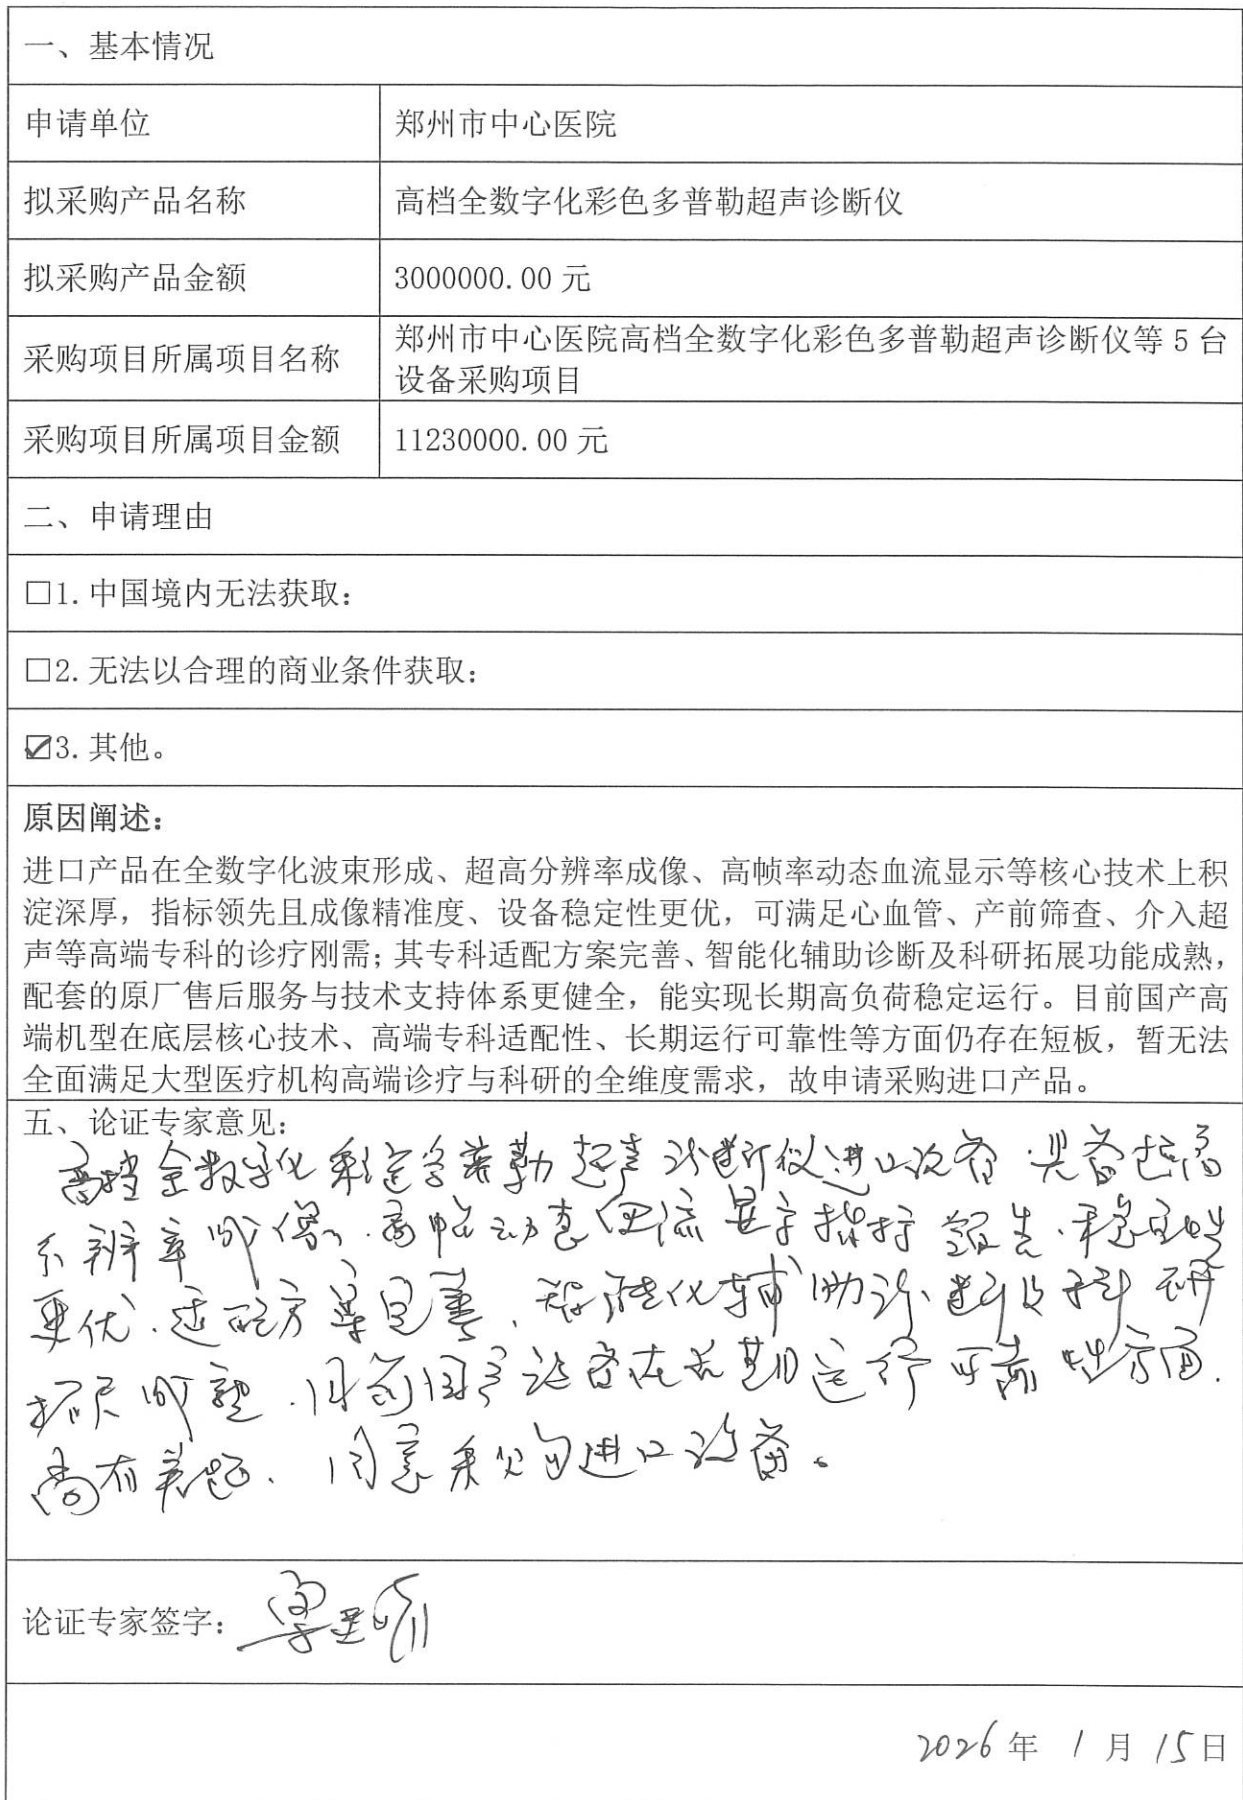 一、基本情况
申请单位 郑州市中心医院
拟采购产品名称 高档全数字化彩色多普勒超声诊断仪
拟采购产品金额 3000000.00 元
采购项目所属项目名称 郑州市中心医院高档全数字化彩色多普勒超声诊断仪等 5 台
设备采购项目
采购项目所属项目金额 11230000.00 元
二、申请理由
□1.中国境内无法获取：
□2.无法以合理的商业条件获取：
☑3.其他。
原因阐述：
进口产品在全数字化波束形成、超高分辨率成像、高帧率动态血流显示等核心技术上积
淀深厚，指标领先且成像精准度、设备稳定性更优，可满足心血管、产前筛查、介入超
声等高端专科的诊疗刚需；其专科适配方案完善、智能化辅助诊断及科研拓展功能成熟，
配套的原厂售后服务与技术支持体系更健全，能实现长期高负荷稳定运行。目前国产高
端机型在底层核心技术、高端专科适配性、长期运行可靠性等方面仍存在短板，暂无法
全面满足大型医疗机构高端诊疗与科研的全维度需求，故申请采购进口产品。
五、论证专家意见：
高档全数字化彩色多普勒超声诊断仪进口设备具备超高
分辨率成像、高帧动态血流显示指标领先、稳定性
更优、适配方案完善、智能化辅助诊断及科研
拓展成熟、目前国产设备在长期运行可靠性方面、
尚有差距、同意采购进口设备。
论证专家签字：
2026 年 1 月 15 日